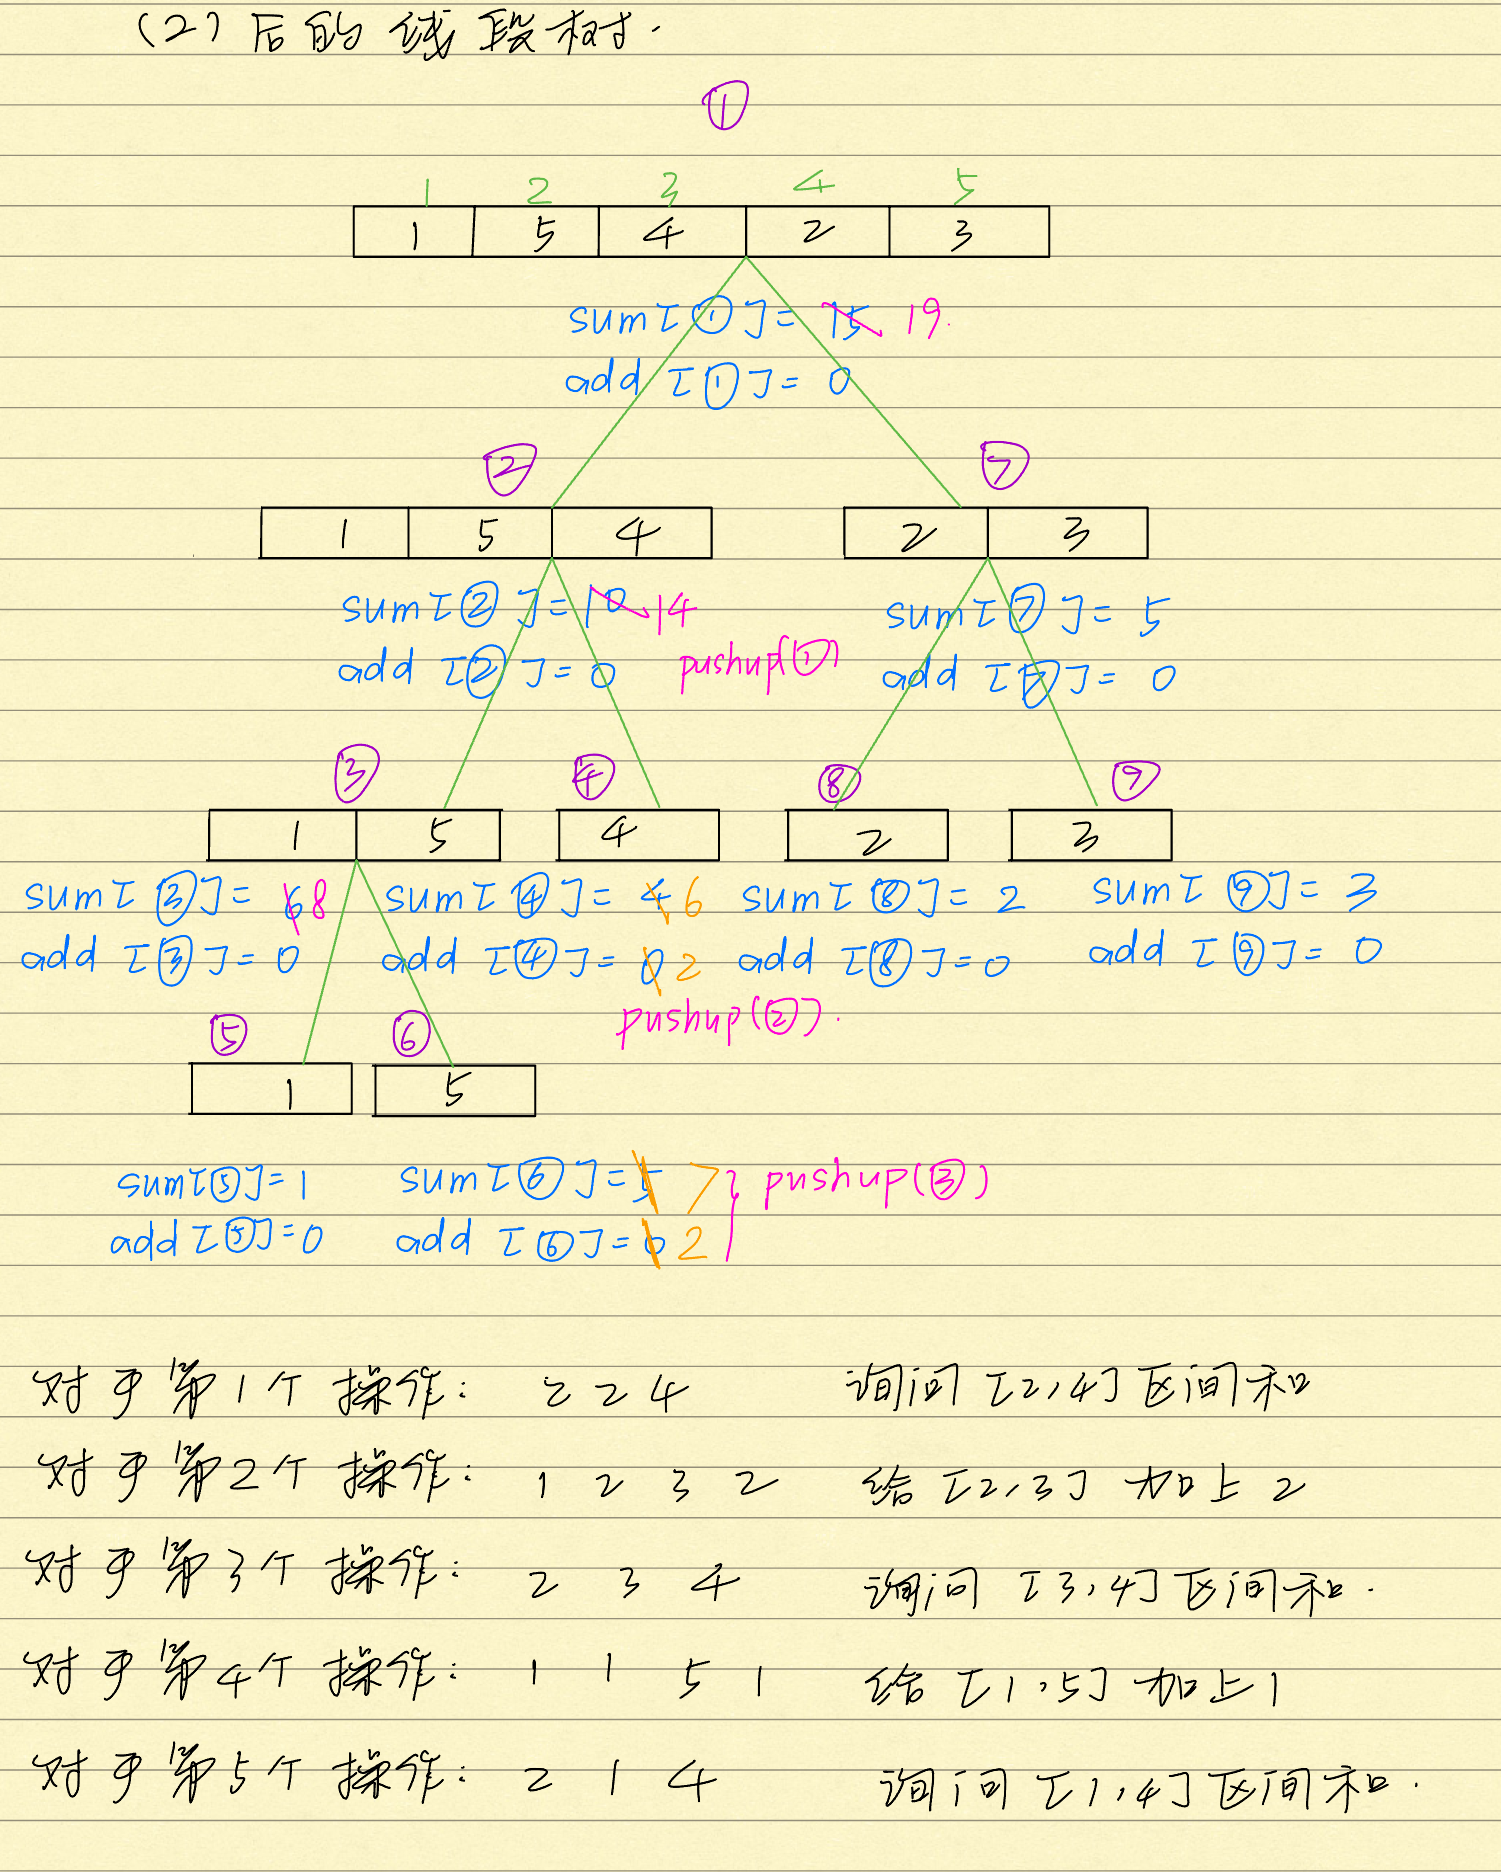 (2)后的线段树.
①
1 2 3 4 5
1 5 4 2 3
sum[①]= 15 19.
add[①]= 0
② ⑦
1 5 4 2 3
sum[②]=10 14 sum[⑦]= 5
add[②]=0 pushup(①) add[⑦]= 0
③ ④ ⑧ ⑨
1 5 4 2 3
sum[③]= 6 8 sum[④]= 4 6 sum[⑧]= 2 sum[⑨]= 3
add[③]= 0 add[④]= 0 2 add[⑧]=0 add[⑨]= 0
pushup(②).
⑤ ⑥
1 5
sum[⑤]=1 sum[⑥]=5 7 } pushup(③)
add[⑤]=0 add[⑥]=0 2
对于第1个操作: 2 2 4 询问[2,4]区间和
对于第2个操作: 1 2 3 2 给[2,3]加上2
对于第3个操作: 2 3 4 询问[3,4]区间和.
对于第4个操作: 1 1 5 1 给[1,5]加上1
对于第5个操作: 2 1 4 询问[1,4]区间和.